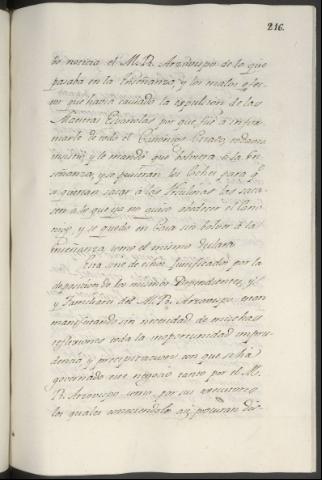 216.
bo noticia el M. R. Arzovispo de lo que
pasaba en la Enseñanza, y los malos efec-
tos que havia causado la expulsion de las
Maestras Españolas por que fue à infor-
marle de todo el Canonigo
insistió y le mandò que bolviera à la En-
señanza, y se pusieran los Coches para q.e
si querian sacar á las Novicias las saca-
sen á lo que ya no quiso obedecer el Cano-
nigo, y se quedo en Casa sin bolver á la
Enseñanza, como el mismo declara.
Esta serie de echos justificados por la
deposicion de los mismos Dependientes, y
y Familiares del M. R. Arzovispo, estan
manifestando sin necesidad de muchas
reflexiones toda la inoportunidad impru-
dencia, y precipitacion con que se ha
governado este negocio tanto por el M.
R. Arzovispo como por sus executores
los quales conociendolo asi procuran dis-